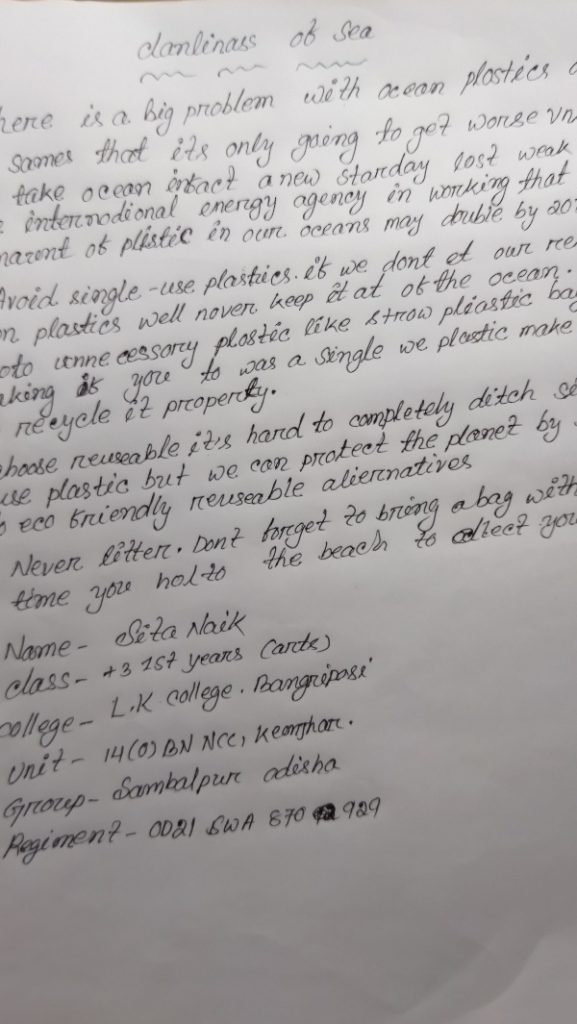 clanlinass of Sea
here is a big problem with ocean plostics
sames that its only going to get worse un
take ocean intact a new starday lost weak
internodional energy agency in working that
narent of plistic in our oceans may double by 20
Avoid single-use plastices. if we dont et our
on plastics well never keep it at of the ocean.
oto unne cessory plostic like strow pliastic bag
aking it your to was a single we plastic make
recycle it properly.
choose reuseable it's hard to completely ditch
use plastic but we can protect the planet by
o eco friendly reuseable aliernatives
Never litter. Dont forget to bring a bag with
time you hol to the beach to collect you
Name - Sita Naik
class - +3 1st years (arts)
college - L.K college. Bangriposi
Unit - 14(O) BN NCC, Keonjhar.
Group - Sambalpur odisha
Regiment - OD21 SWA 870 929